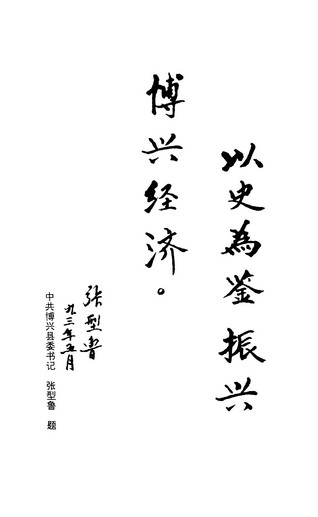 以史為鉴振兴
博兴经济。
张型鲁
九三年五月
中共博兴县委书记 张型鲁 题